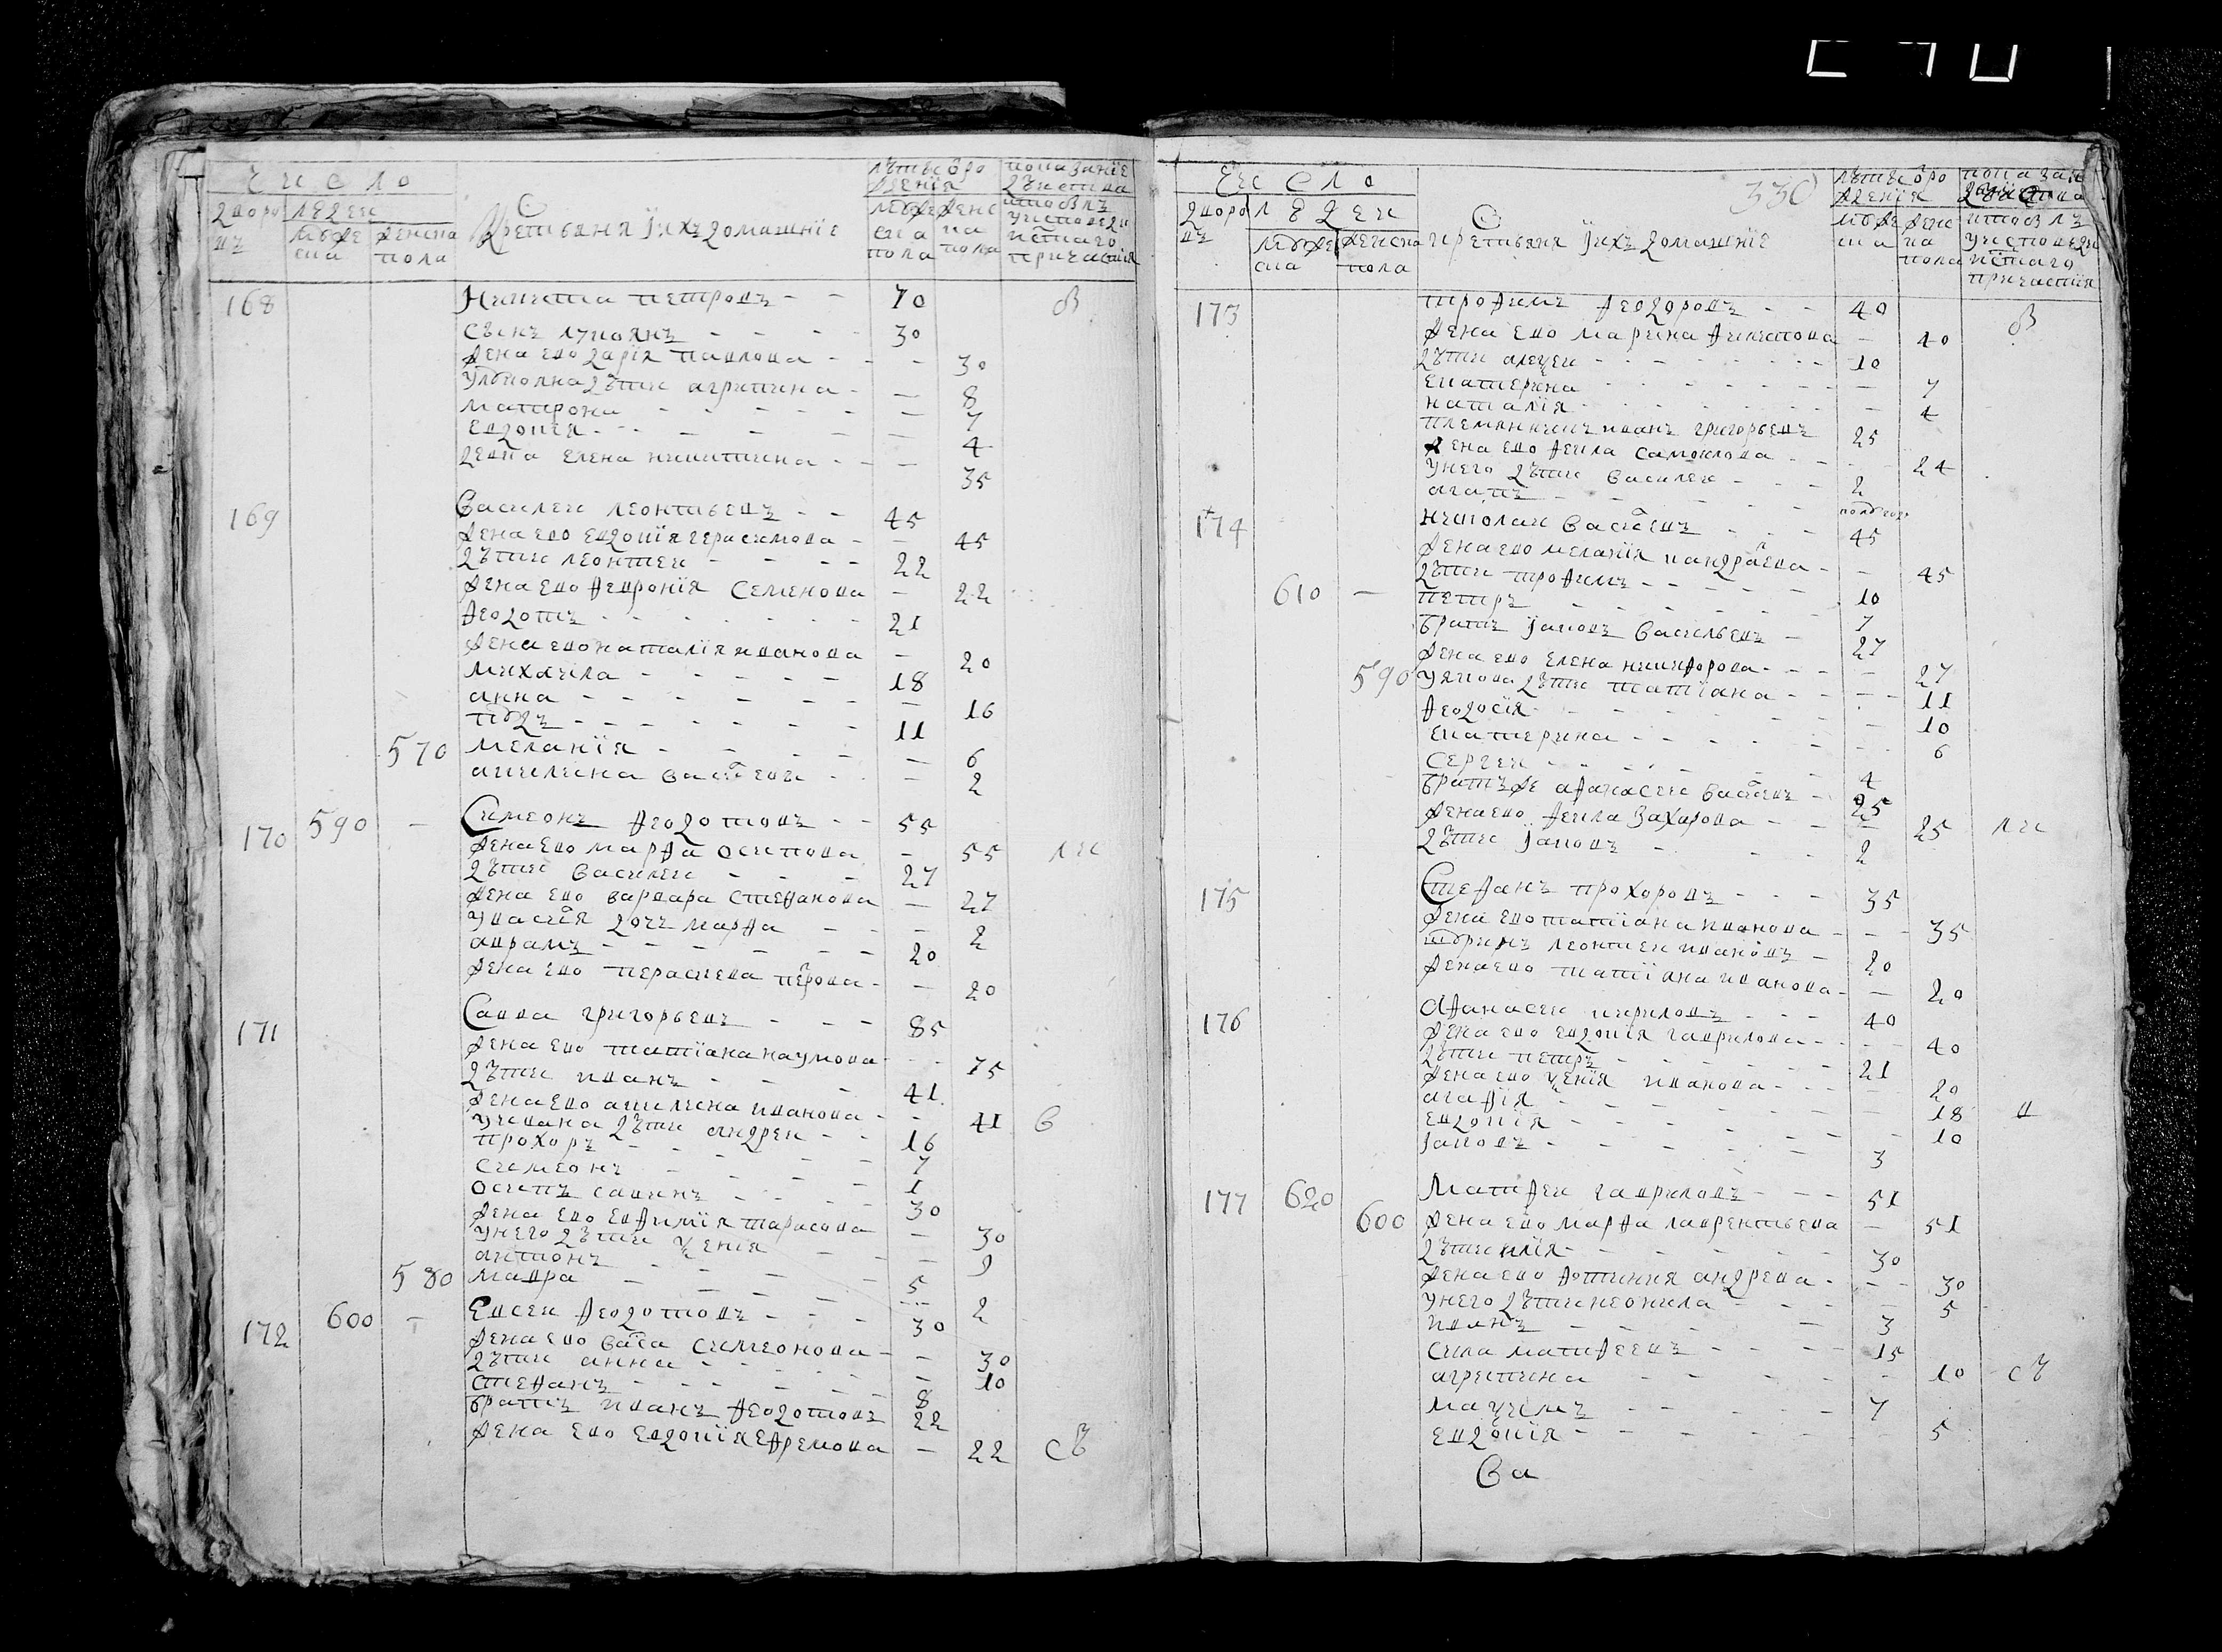 Число
Дворовъ
людеи
Мужеска
женска пола
Крестьяня ихъ домашніе
лѣтъ от рожденія
Мужеска пола
женска пола
показаніе дѣиства кто былъ у исповеди и стаго причастія
168 Никита петровъ 70 в
сынъ лукоянъ 30
жена ево дарія павлова 30
У лукояна дѣти агрипина 8
матрона 7
евдокія 4
девка елена никитина 35
169 Василеи леонтьевъ 45
жена ево евдокія герасимова 45
дѣти леонтеи 22
жена ево февронія Семенова 22
федотъ 21
жена ево наталія иванова 20
михаила 18
анна 16
иудъ 11
570 меланія 6
акилина васиевы 2
170 590 — Симеонъ федотовъ 55
жена ево марфа осипова 55 ли
дѣти василеи 27
жена ево варвара стефанова 27
У васиия дочь марфа 2
аврамъ 20
жена ево пераскева петрова 20
171 Савва григорьевъ 85
жена ево татіана наумова 75
дѣти иванъ 41
жена ево акилина иванова 41 в
У ивана дѣти андреи 16
прохоръ 7
симеонъ 1
Осипъ савинъ 30
жена ево евфимія тарасова 30
Унего дѣти Ѯенія 9
антонъ 5
580 мавра 2
172 600 — Евсеи федотовъ 30
жена ево васа симеонова 30
дѣти анна 10
стефанъ 8
братъ иванъ федотовъ 22
жена ево евдокія ефремова 22 съ
330
Число
дворовъ
людеи
Мужеска
женска пола
Крестьяня ихъ домашніе
лѣтъ от рожденія
Мужеска
женска пола
показаніе дѣиства кто былъ у исповеди и стаго причастія
173 трофимъ федоровъ 40 в
жена ево марина филипова 40
дѣти алеѯеи 10
екатерина 7
наталія 4
племянникъ иванъ григорьевъ 25
жена ево фекла самоилова 24
Унего дѣти василеи 2
агапъ полугода
174 николаи васиевъ 45
жена ево меланія кандраева 45
дѣти трофимъ 10
610 — петръ 7
братъ іаковъ васильевъ 27
жена ево елена никифорова 27
590 У якова дѣти татіана 11
федосія 10
екатерина 6
сергеи 4
братъ же афанасеи васиевъ 25
жена ево фекла захарова 25 ли
дѣти іаковъ 2
175 Стефанъ прохоровъ 35
жена ево татіана иванова 35
шуринъ леонтеи ивановъ 20
жена ево татіана иванова 20
176 Афанасеи кириловъ 40
жена ево евдокія гаврилова 40
дѣти петръ 21
жена ево Ѯенія иванова 20
агафія 18 в
евдокія 10
іаковъ 3
177 620 Матфеи гавриловъ 51
600 жена ево марфа лаврентьева 51
дѣти илія 30
жена ево фотиния андрева 30
Унего дѣти неонила 5
иванъ 3
сила матфеевъ 15
агрипина 10 съ
маѯимъ 7
евдокія 5
Ва